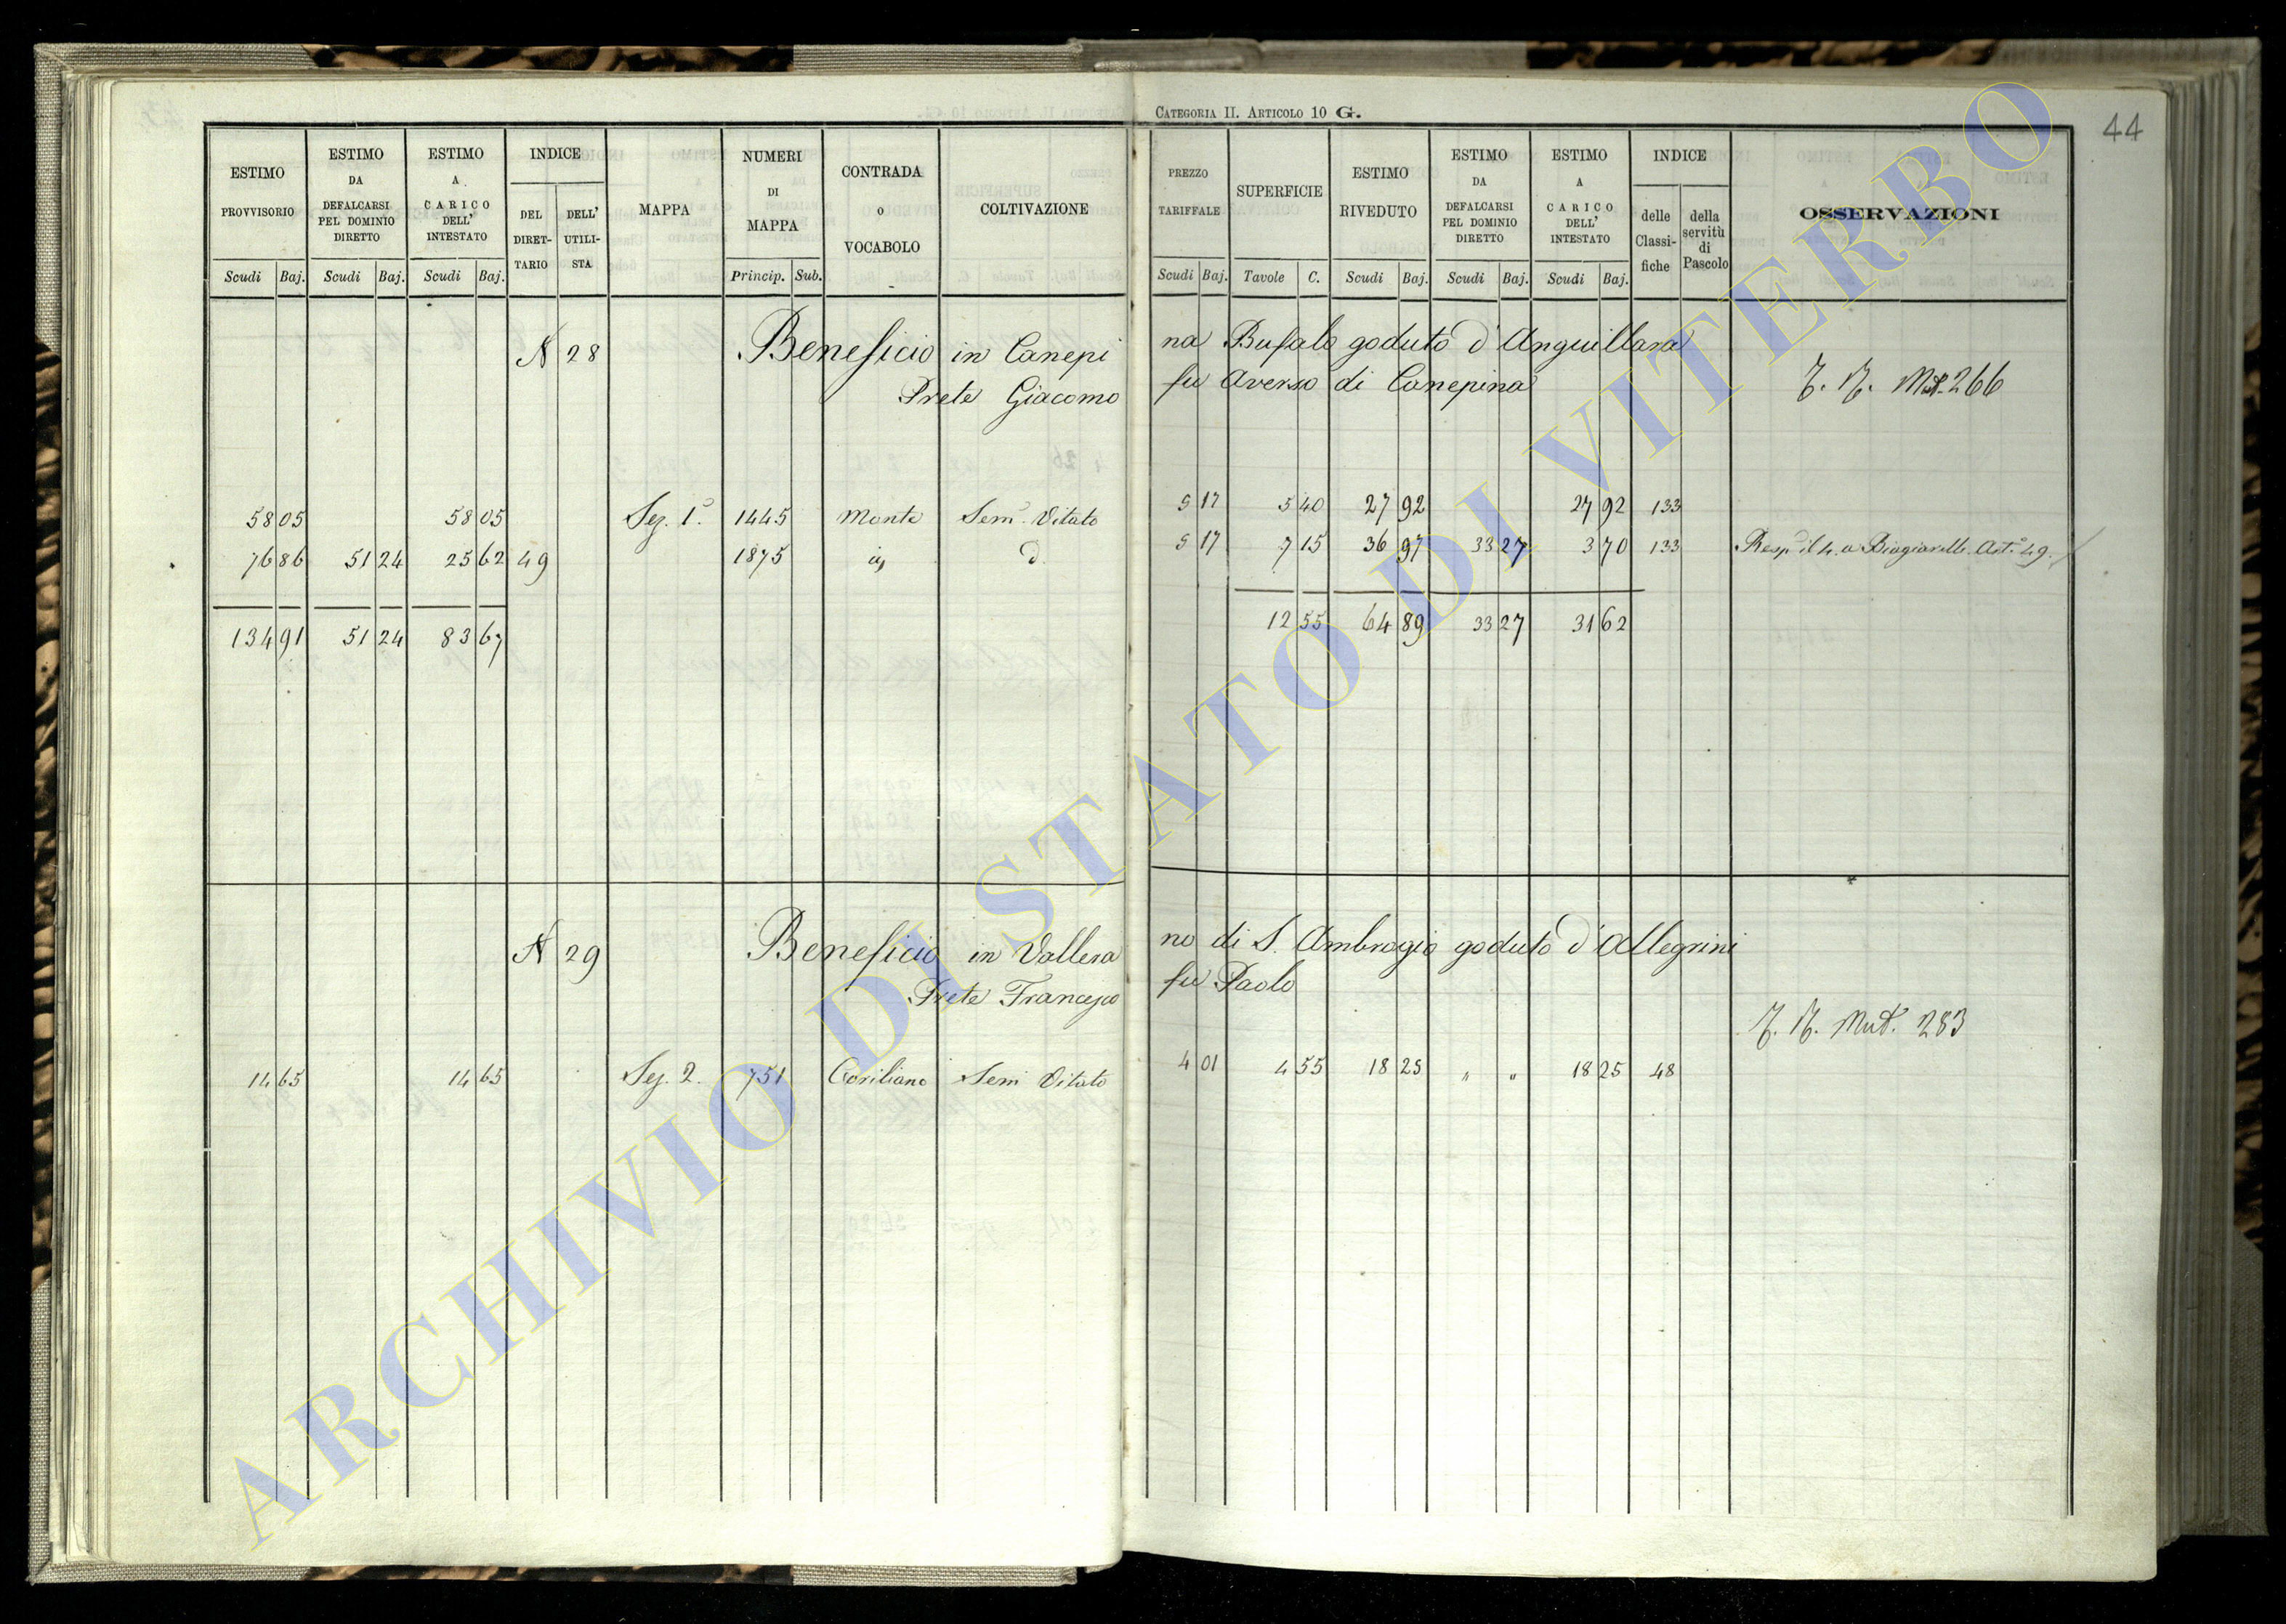 CATEGORIA II. ARTICOLO 10 G.
44
ESTIMO PROVVISORIO Scudi Baj.
ESTIMO DA DEFALCARSI PEL DOMINIO DIRETTO Scudi Baj.
ESTIMO A CARICO DELL' INTESTATO Scudi Baj.
INDICE DEL DIRET-TARIO DELL' UTILI-STA
MAPPA
NUMERI DI MAPPA Princip. Sub.
CONTRADA o VOCABOLO
COLTIVAZIONE
PREZZO TARIFFALE Scudi Baj.
SUPERFICIE Tavole C.
ESTIMO RIVEDUTO Scudi Baj.
ESTIMO DA DEFALCARSI PEL DOMINIO DIRETTO Scudi Baj.
ESTIMO A CARICO DELL' INTESTATO Scudi Baj.
INDICE delle Classi-fiche della servitù di Pascolo
OSSERVAZIONI
N 28 Beneficio in Canepi na Bufalo goduto d'Anguillara
Prete Giacomo fu Averso di Canepina
Mut. 266
58 05 58 05 Sez. 1ª. 1445 Monte Sem. Vitato 5 17 5 40 27 92 27 92 133
76 86 51 24 25 62 49 1875 id. d. 5 17 7 15 36 97 33 27 3 70 133 Resp. il 4. a Biagiarelli Art.° 49.
134 91 51 24 83 67 12 55 64 89 33 27 31 62
N 29 Beneficio in Vallera no di S. Ambrogio goduto d'Allegrini
Prete Francesco fu Paolo
Mut. 283
14 65 14 65 Sez. 2. 751 Coriliano Sem Vitato 4 01 4 55 18 25 " " 18 25 48
ARCHIVIO DI STATO DI VITERBO